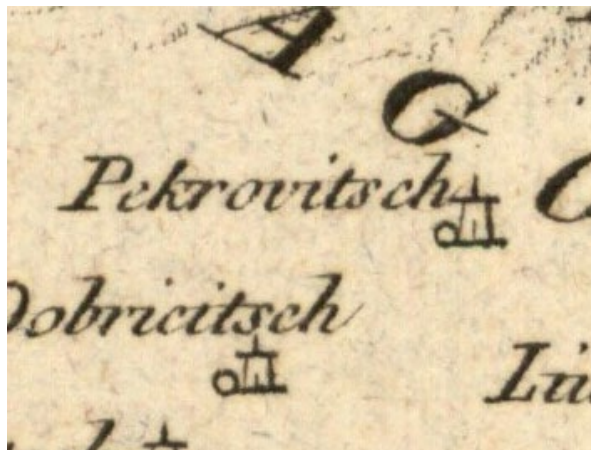 A G
Pekrovitsch
Dobricitsch